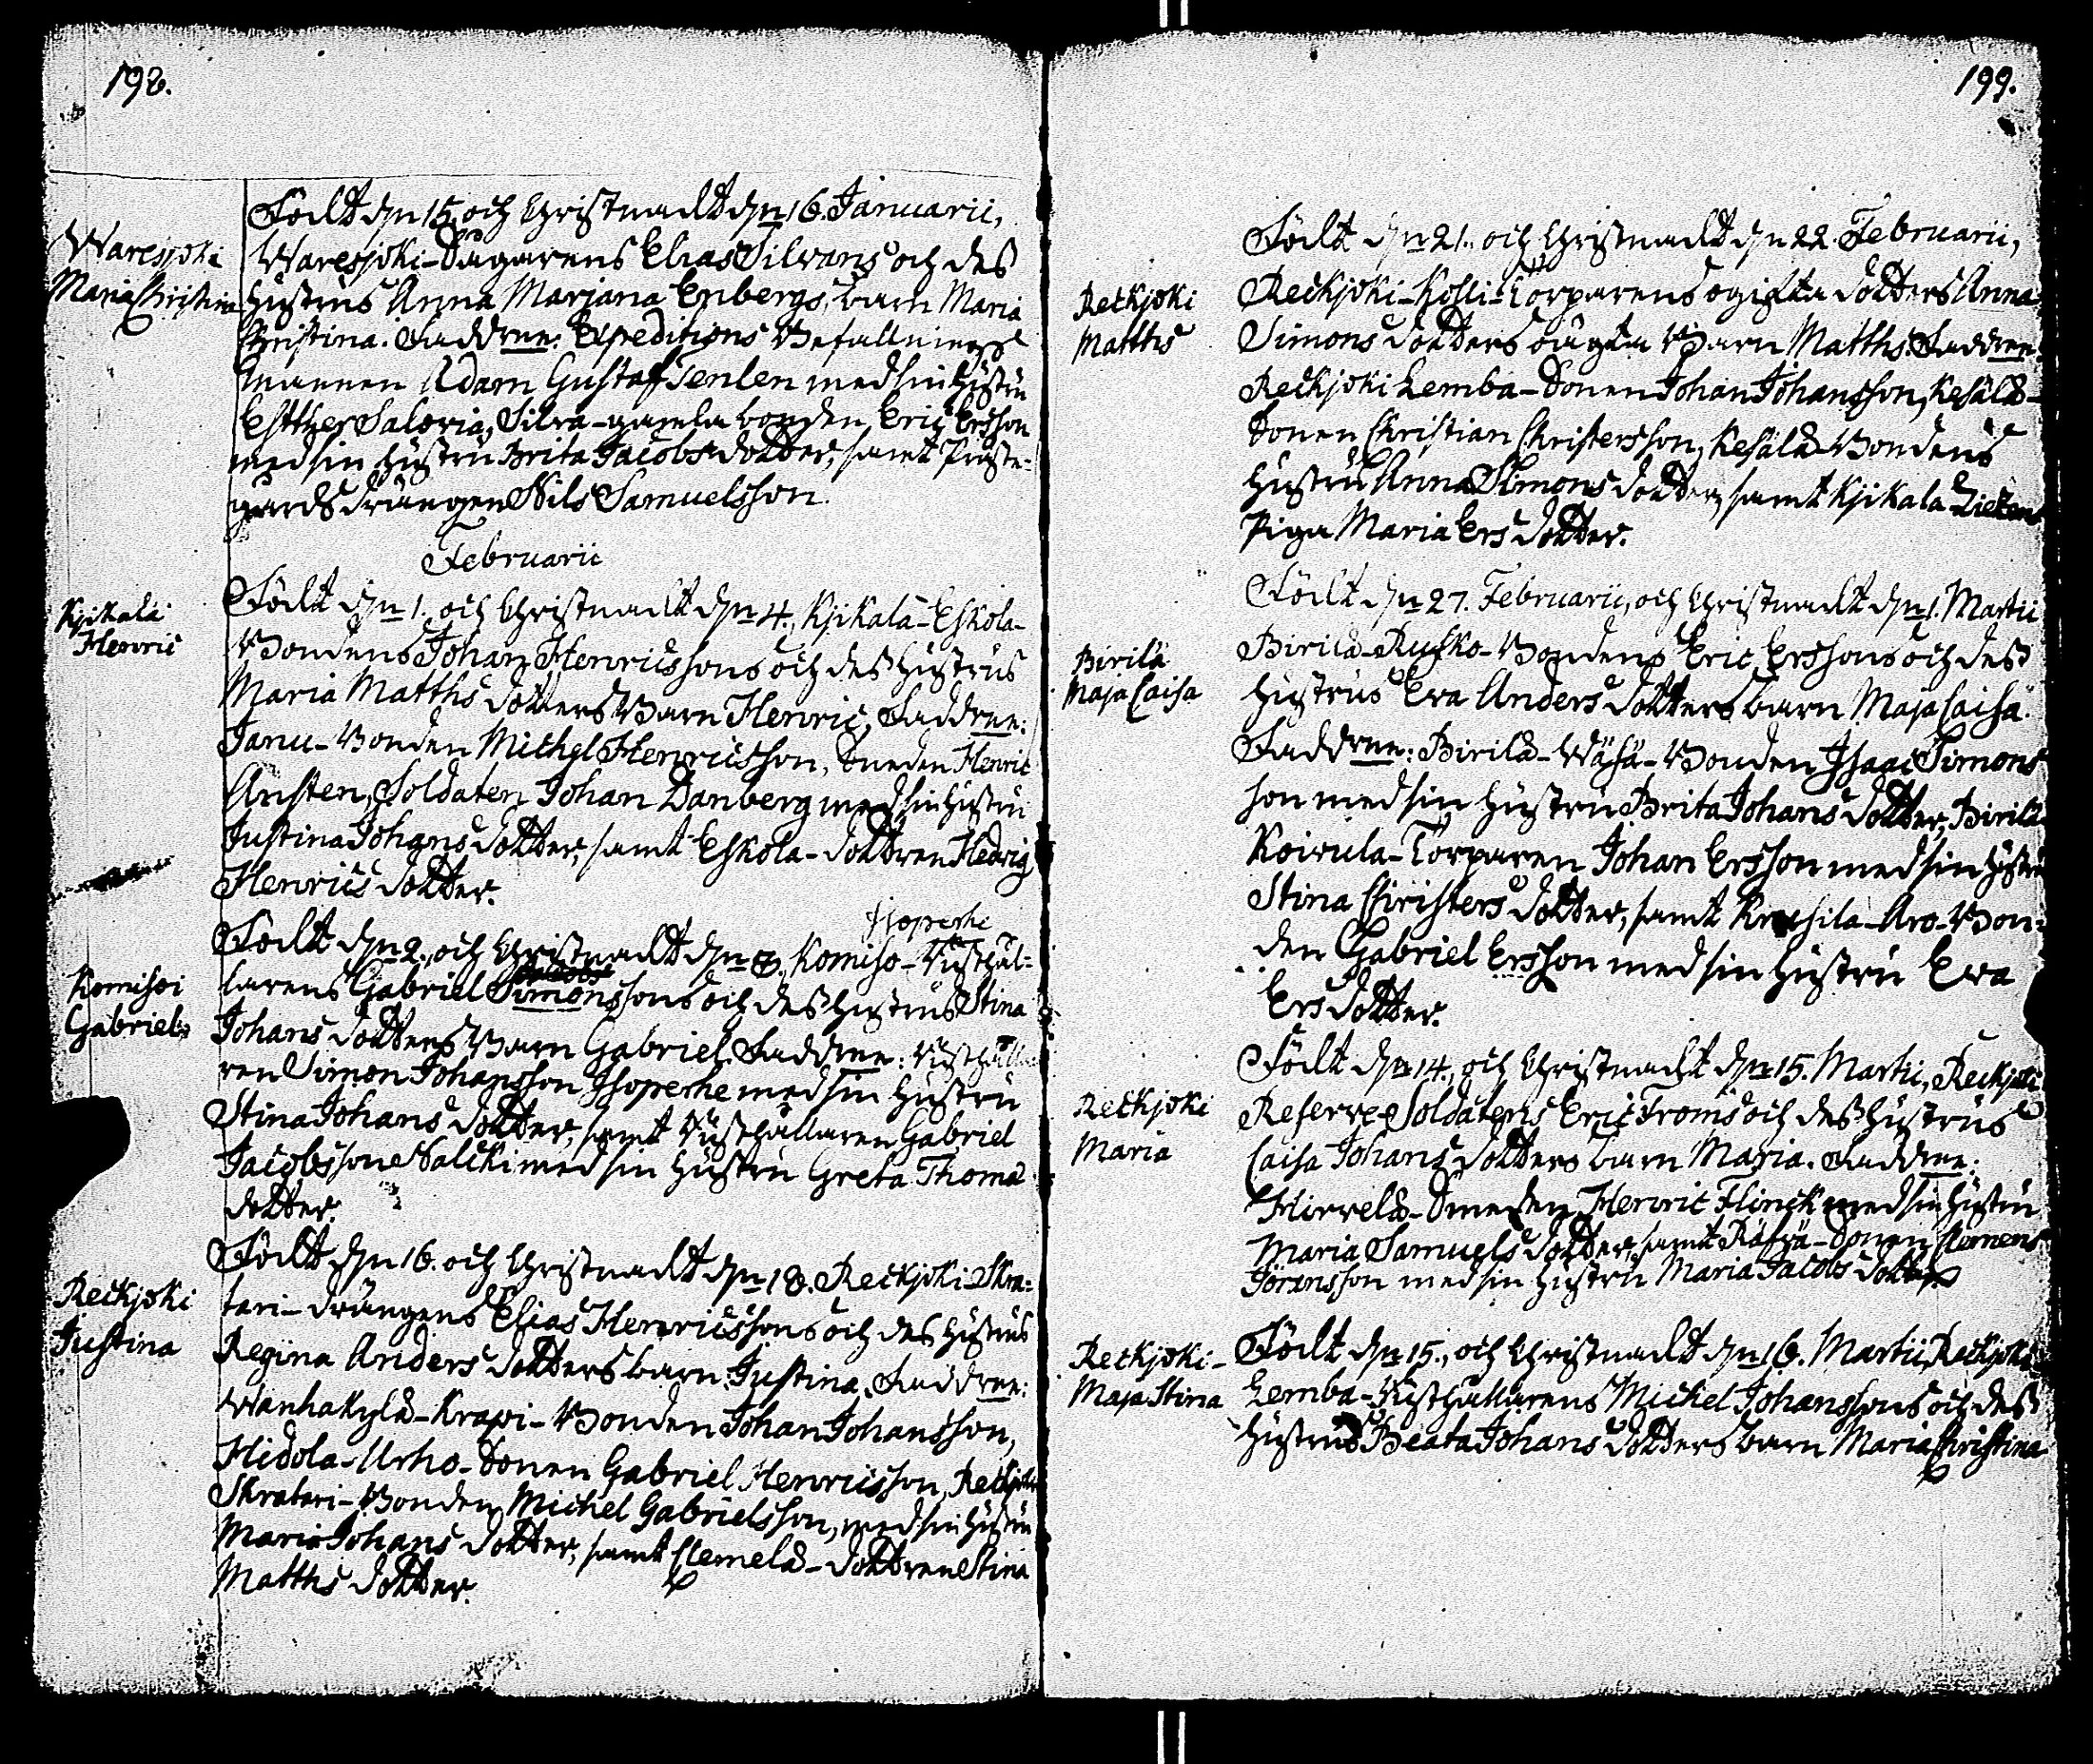 198.
Födt d 15. och Christnadt d 16. Januarii,
Waresjoki
Maria Christina
Waresjoki-Sågarens Elias Silvans och des
Hustrus Anna Marjana Enbergs, barn Maria
Christina. Faddrene: Expeditions Befallnings
mannen Adam Gustaf Tenlen med sin Hustru
Esther Saloria, Silva-gamla bonden Eric Ersson
med sin Hustru Brita Jacobs dotter, samt Präste-
gårds Drängen Nils Samuelsson.
Februarii
Kjikala
Henric
Födt d 1. och Christnadt d 4. Kjikala-Eskola-
Bondens Johan Henricssons och dess hustrus
Maria Matths dotters Barn Henric, Faddrene:
Janu-Bonden Michel Henricsson, Smeden Henric
Ahsten, Soldaten Johan Danberg med sin hustru
Justina Johans dotter, samt Eskola-dottren Hedvig
Henrics dotter.
Isoperhe
Komisoi
Gabriel
Födt d 2. och Christnadt d 8. Komiso-Rusthål-
larens Gabriel Simonssons och dess hustrus Stina
Johans dotters Barn Gabriel. Faddrene: Rusthålla
ren Simon Johansson Isoperhe med sin Hustru
Stina Johans dotter, samt Rusthållaren Gabriel
Jacobsson Nalcki med sin Hustru Greta Thomæ
dotter.
Reckjoki
Justina
Födt d 16. och Christnadt d 18. Reckjoki Skra-
tari-drängens Elias Henricssons och des hustrus
Regina Anders dotters barn Justina. Faddrene:
Wanhakylä-Krapi-Bonden Johan Johansson,
Hidola-Urho-Sonen Gabriel Henricsson, Reckjoki
Skratari-Bonden Michel Gabrielsson, med sin hustru
Maria Johans dotter, samt Clemelä-dottren Stina
Matths dotter.
199.
Reckjoki
Matths
Födt d 21. och Christnadt d 22. Februarii,
Reckjoki-Kolli-Torparens ogifta dotters Anna
Simons dotters oächta Barn Matths. Faddrene:
Reckjoki Lemba-Sonen Johan Johansson, Kesälä-
Sonen Christian Christersson, Kesälä-Bondens
Hustru Anna Simons dotter, samt Kjikala
Piga Maria Ers dotter.
Birilä
Maja Caisa
Födt d 27. Februarii, och Christnadt d 1. Martii
Birilä-Rusko-Bondens Eric Erssons och dess
hustrus Eva Anders dotters barn Maja Caisa.
Faddrene: Birilä-Wäsä-Bonden Isaac Simons
son med sin hustru Brita Johans dotter, Birilä
Koivula-Torparen Johan Ersson med sin hustru
Stina Christers dotter, samt Krusila-Aro-Bon-
den Gabriel Ersson med sin hustru Eva
Ers dotter.
Reckjoki
Maria
Födt d 14. och Christnadt d 15. Martii, Reckjoki
Reserve-Soldatens Eric Froms och dess hustrus
Caisa Johans dotters barn Maria. Faddrene:
Hirvelä-Smeden Henric Flinck med sin hustru
Maria Samuels dotter, samt Räfsä-Sonen Clemens
Jöransson med sin hustru Maria Jacobs dotter
Reckjoki-
Maja Stina
Födt d 15. och Christnadt d 16. Martii, Reckjoki
Lemba-Rusthållarens Michel Johanssons och dess
hustrus Beata Johans dotters barn Maria Christina